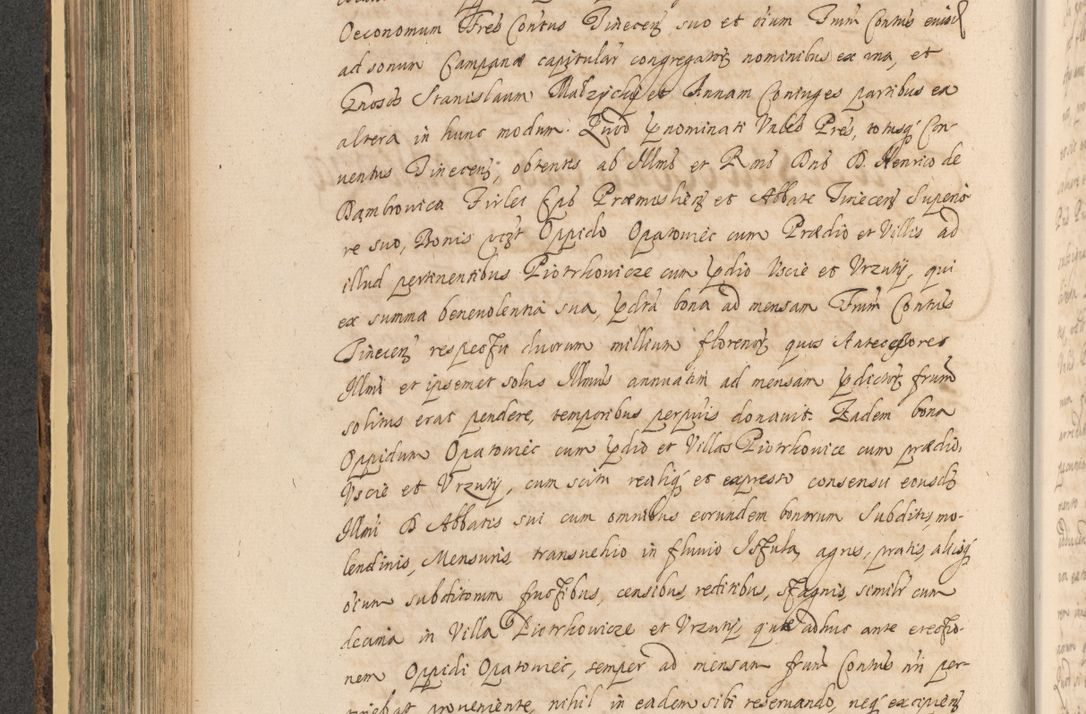 Oeconomum Fres Contus Tinecen suo et oium Frum Contus eiusd
ad sonum Campanæ capitular congregator nominibus ex una, et
Gnosos Stanislaum Malzycki et Annam Coniuges partibus ex
altera in hunc modum. Quod pnominati Vnbles Pres, totusq Con-
uentus Tinecens, obtentis ab Illmo et Rmo Dno D. Henrico de
Dambrovica Firlei Epo Præmislien et Abbate Tinecen Superio-
re suo, Bonis vczt Oppido Opatowiec cum Prædio et Villis ad
illud pertinentibus Piotrkowicze cum pdio Vscie et Vrzuty, qui
ex summa beneuolentia sua, pdta bona ad mensam Frum Contus
Tinecen respectu duorum millium florenor quos Antecessores
Illmi et ipsemet solus Illmus annuatim ad mensam pdictor frum
solitus erat pendere, temporibus perpuis donauit. Eadem bona
Oppidum Opatowiec cum pdio et Villas Piotrkowice cum prædio,
Vscie et Vrzuty, cum scitu realiq et expresso consensu eiusdem
Illmi D Abbatis sui cum omnibus eorundem bonorum Subditis mo-
lendinis, Mensuris, transuehio in fluuio Istula, agris, pratis, aliisq
oium subditorum fructibus, censibus, reditibus, stagnis, similr cum
decima in Villa Piotrkowicze et Vrzuty, quæ adhuc ante erectio-
nem Oppidi Opatowiec, semper ad mensam frum Contus nri per-
tinebat proueniente, nihil in eadem sibi reseruando, neq excipien